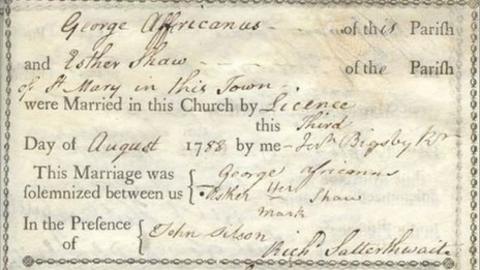 George Affricanus of this Parish
and Esther Shaw of the Parish
of St Mary in this Town.
were Married in this Church by Licence
this Third
Day of August 1788 by me
This Marriage was
solemnized between us
George Africanus
Esther Her Shaw
mark
In the Presence
of
John
Rich Satterthwaite